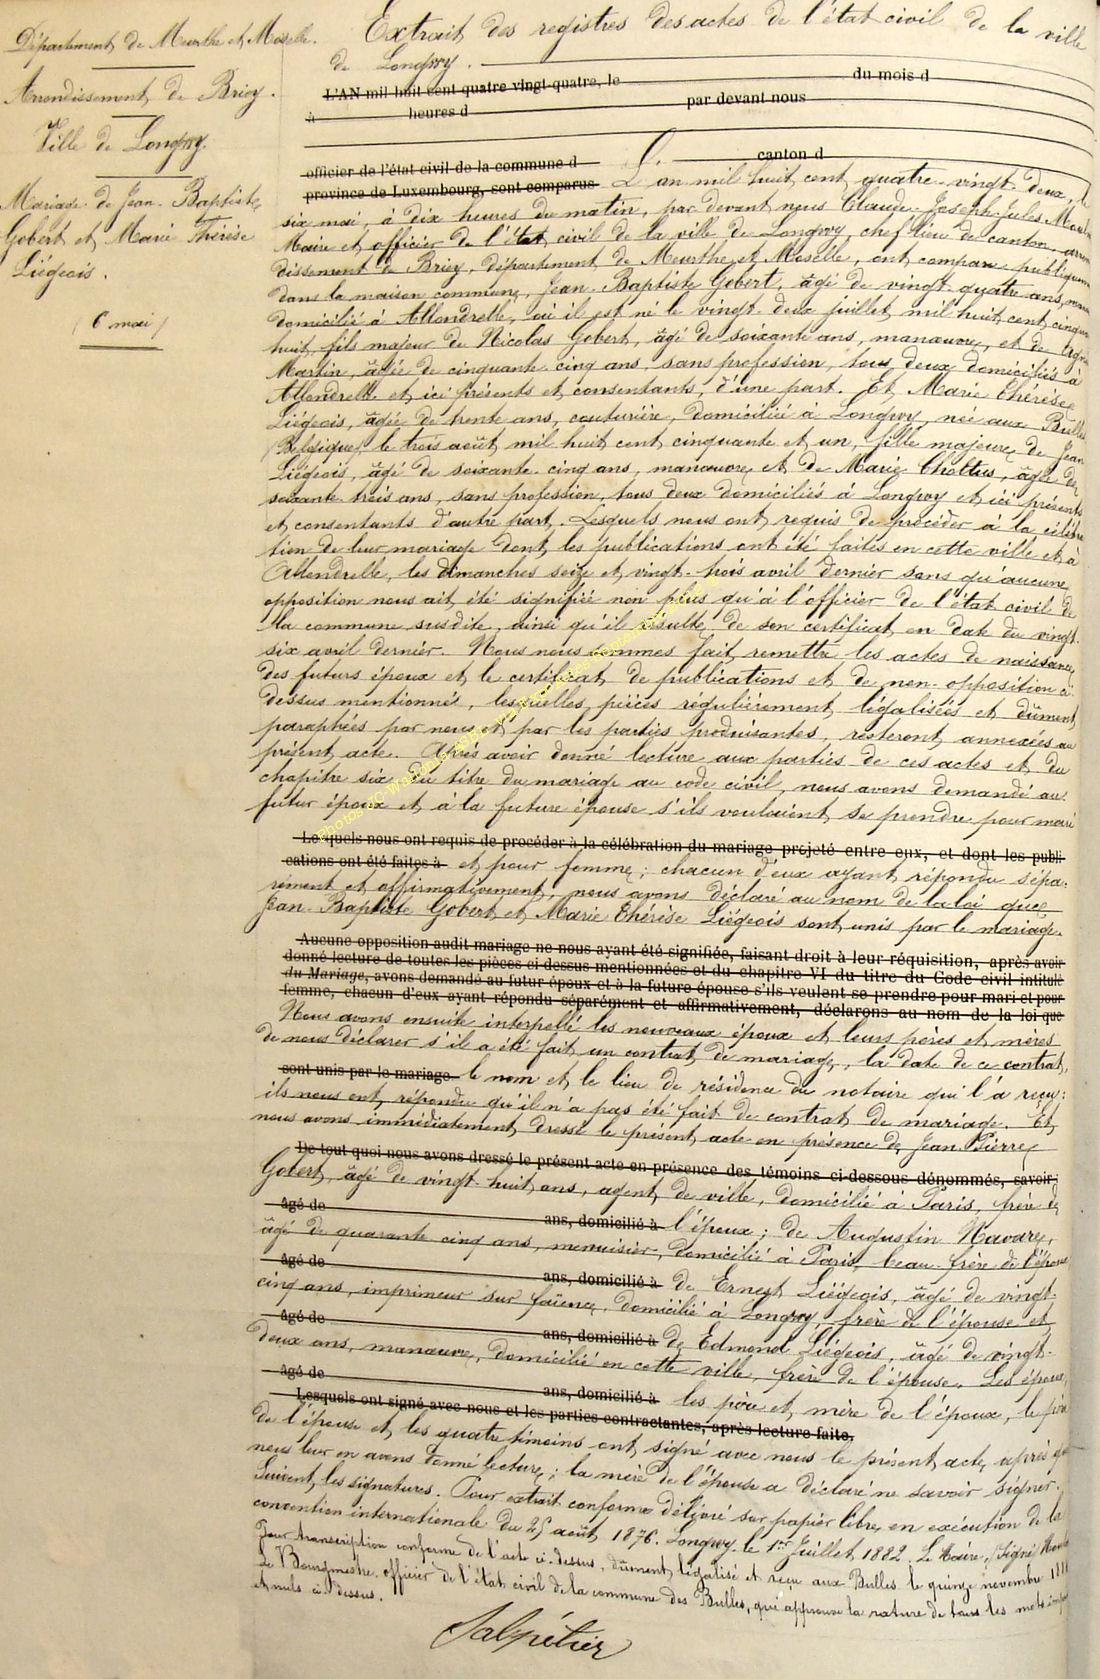 Département de Meurthe et Moselle.
Arrondissement de Briey.
Ville de Longwy.
Mariage de Jean-Baptiste
Gobert et Marie Thérèse
Liégeois.
(6 mai)
Extrait des registres des actes de l'état civil de la ville
de Longwy.
L'AN mil huit cent quatre vingt-quatre, le du mois d
à heures d par devant nous
officier de l'état civil de la commune d canton d
province de Luxembourg, sont comparus L'an mil huit cent quatre-vingt-deux, le
six mai, à dix heures du matin, par devant nous Claude-Joseph-Jules
Maire et officier de l'état civil de la ville de Longwy, chef-lieu de canton, arron
dissement de Briey, département de Meurthe et Moselle, ont comparu publiquem
dans la maison commune, Jean-Baptiste Gobert, âgé de vingt-quatre ans,
domicilié à Allondrelle, où il est né le vingt-deux juillet mil huit cent cinquan
huit, fils majeur de Nicolas Gobert, âgé de soixante ans, manœuvre, et de
Martin, âgée de cinquante-cinq ans, sans profession, tous deux domiciliés à
Allondrelle et ici présents et consentants, d'une part. Et Marie Thérèse
Liégeois, âgée de trente ans, couturière, domiciliée à Longwy, née aux Bulles
(Belgique) le trois août mil huit cent cinquante et un, fille majeure de Jean
Liégeois, âgé de soixante-cinq ans, manœuvre et de Marie Chottus, âgée de
soixante-trois ans, sans profession, tous deux domiciliés à Longwy et ici présents
et consentants d'autre part. Lesquels nous ont requis de procéder à la célébra
tion de leur mariage dont les publications ont été faites en cette ville et à
Allondrelle, les dimanches seize et vingt-trois avril dernier sans qu'aucune
opposition nous ait été signifiée non plus qu'à l'officier de l'état civil de
la commune susdite, ainsi qu'il résulte de son certificat en date du vingt-
six avril dernier. Nous nous sommes fait remettre les actes de naissance
des futurs époux et le certificat de publications et de non-opposition ci-
dessus mentionnés, lesquelles pièces régulièrement légalisées et dûment
paraphées par nous et par les parties produisantes, resteront annexées au
présent acte. Après avoir donné lecture aux parties de ces actes et du
chapitre six du titre du mariage au code civil, nous avons demandé au
futur époux et à la future épouse s'ils voulaient se prendre pour mari
Lesquels nous ont requis de procéder à la célébration du mariage projeté entre eux, et dont les publi-
cations ont été faites à et pour femme; chacun d'eux ayant répondu sépa-
rément et affirmativement, nous avons déclaré au nom de la loi que
Jean-Baptiste Gobert et Marie Thérèse Liégeois sont unis par le mariage.
Aucune opposition audit mariage ne nous ayant été signifiée, faisant droit à leur réquisition, après avoir
donné lecture de toutes les pièces ci-dessus mentionnées et du chapitre VI du titre du Code civil intitulé
du Mariage, avons demandé au futur époux et à la future épouse s'ils veulent se prendre pour mari et pour
femme, chacun d'eux ayant répondu séparément et affirmativement, déclarons au nom de la loi que
Nous avons ensuite interpellé les nouveaux époux et leurs pères et mères
de nous déclarer s'il a été fait un contrat de mariage, la date de ce contrat,
sont unis par le mariage. le nom et le lieu de résidence du notaire qui l'a reçu;
ils nous ont répondu qu'il n'a pas été fait de contrat de mariage. Et
nous avons immédiatement dressé le présent acte en présence de Jean Pierre
De tout quoi nous avons dressé le présent acte en présence des témoins ci-dessous dénommés, savoir:
Gobert, âgé de vingt-huit ans, agent de ville, domicilié à Paris, frère de
âgé de ans, domicilié à l'époux; de Augustin Navarre,
âgé de quarante-cinq ans, menuisier, domicilié à Paris, beau-frère de l'époux
âgé de ans, domicilié à de Ernest Liégeois, âgé de vingt-
cinq ans, imprimeur sur faïence, domicilié à Longwy, frère de l'épouse et
âgé de ans, domicilié à de Edmond Liégeois, âgé de vingt-
deux ans, manœuvre, domicilié en cette ville, frère de l'épouse. Les époux,
âgé de ans, domicilié à les père et mère de l'époux, le père
Lesquels ont signé avec nous et les parties contractantes, après lecture faite.
de l'épouse et les quatre témoins ont signé avec nous le présent acte après que
nous leur en avons donné lecture; la mère de l'épouse a déclaré ne savoir signer.
Suivent les signatures. Pour extrait conforme délivré sur papier libre en exécution de la
convention internationale du 25 août 1876. Longwy le 1er Juillet 1882. Le Maire, (Signé)
Pour transcription conforme de l'acte ci-dessus, dûment légalisé et reçu aux Bulles le quinze novembre
Le Bourgmestre, officier de l'état civil de la commune des Bulles, qui approuve la rature de tous les mots
et nuls ci-dessus.
Salpétier